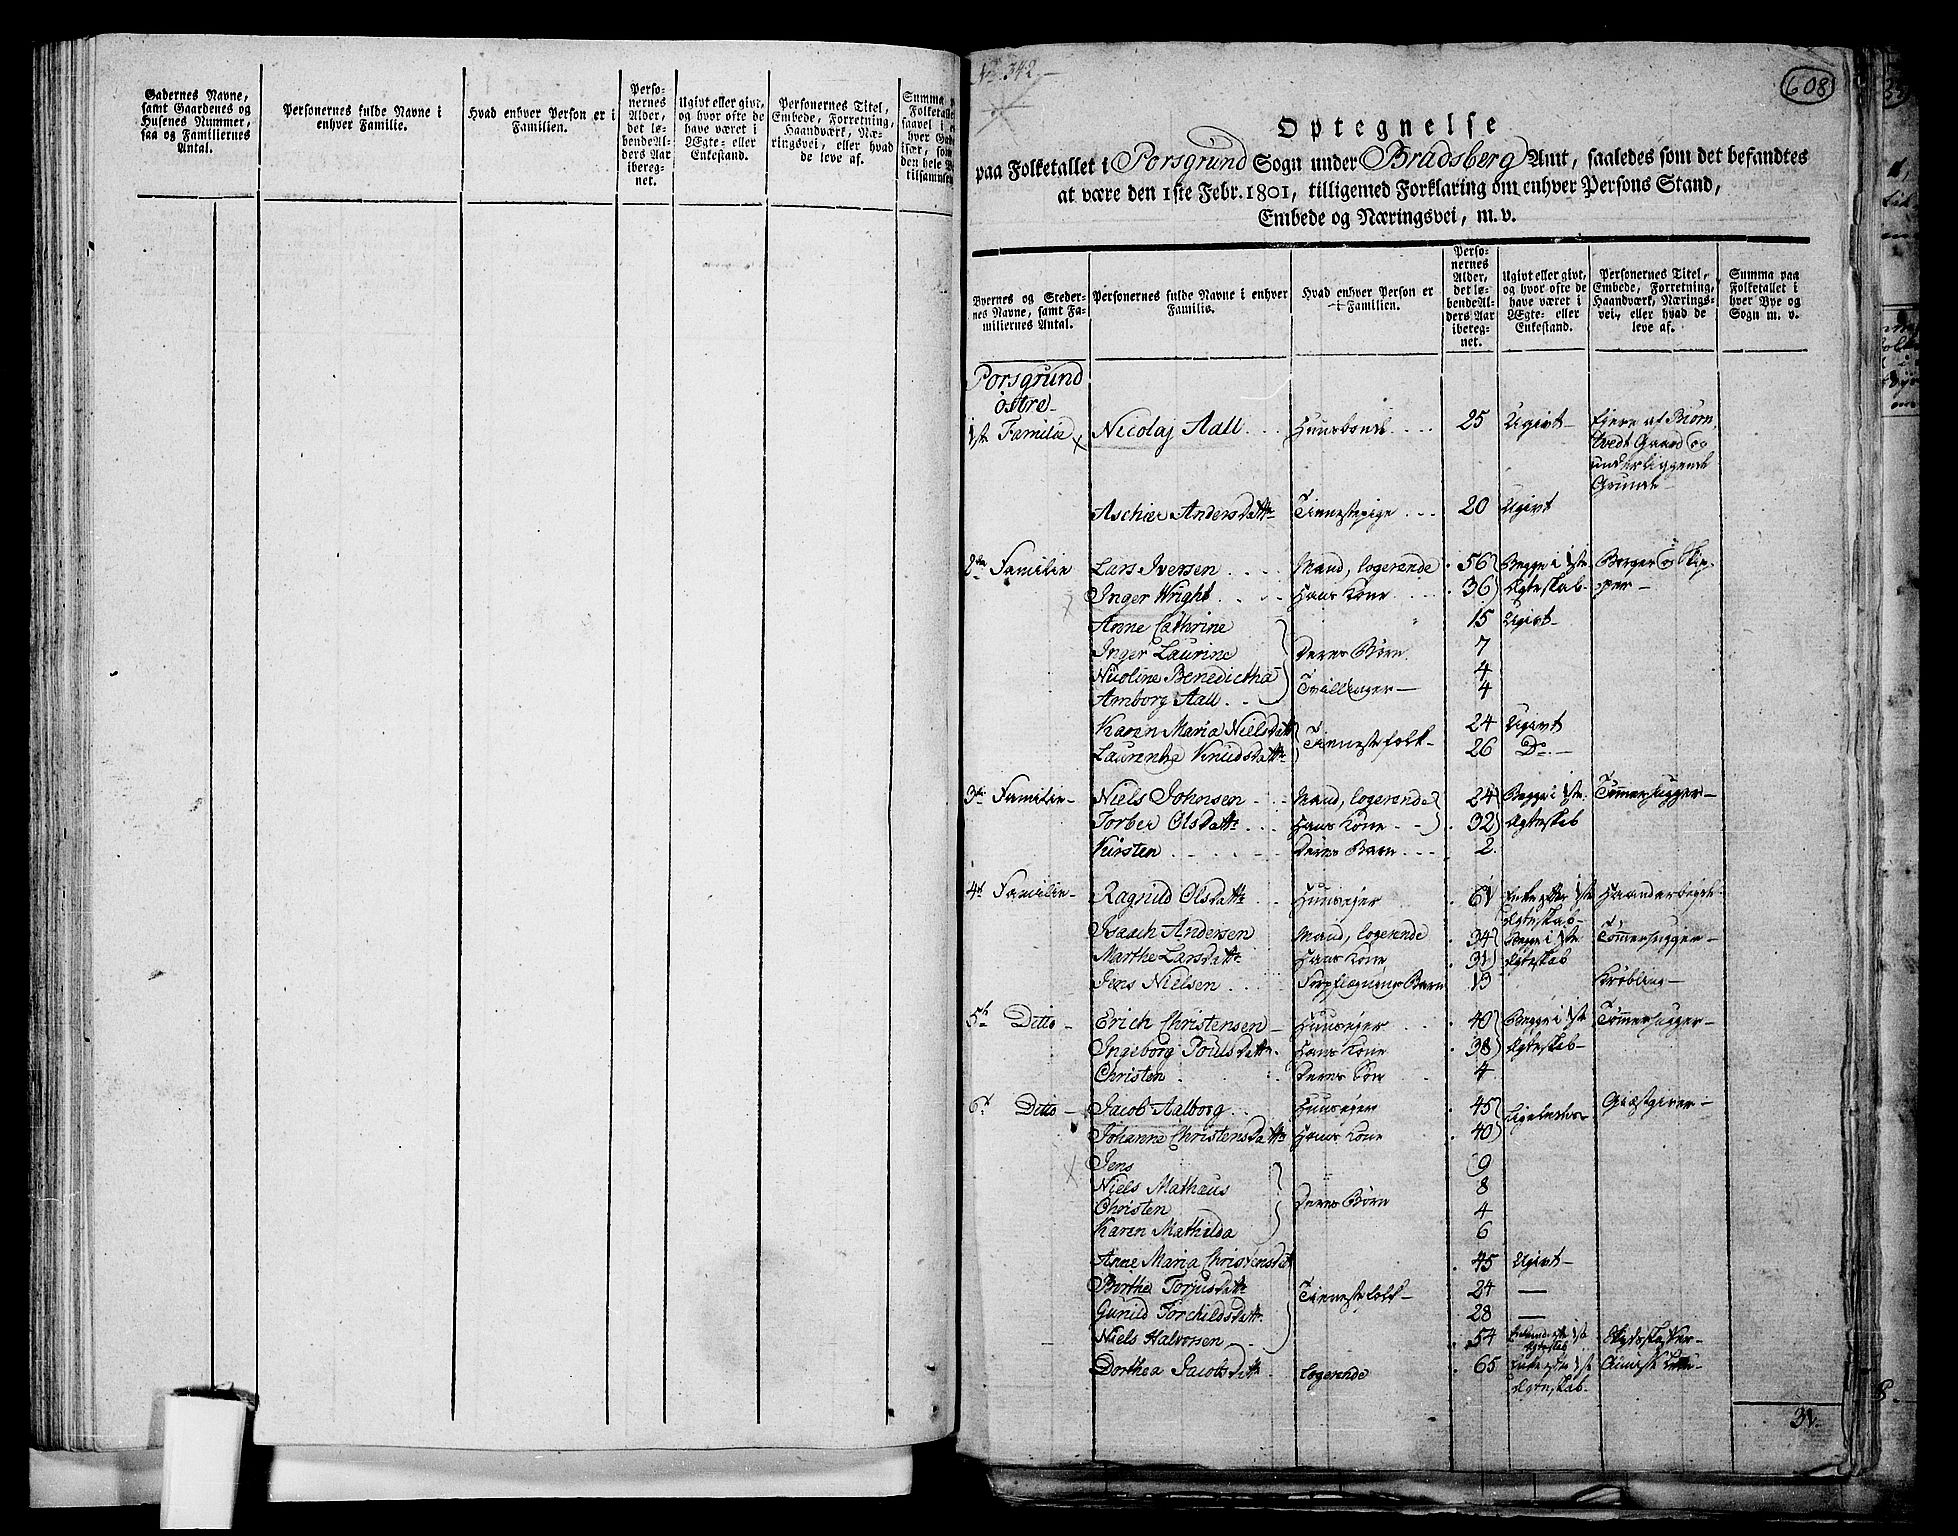 Gadernes Navne, samt Gaardenes og Husenes Nummer, saa og Familiernes Antal.
Personernes fulde Navne i enhver Familie.
Hvad enhver Person er i Familien.
Personernes Alder, det løbende Alders Aar iberegnet.
Ugivt eller givt, og hvor ofte de have været i Ægte- eller Enkestand.
Personernes Titel, Embede, Forretning, Haandværk, Næringsvei, eller hvad de leve af.
No. 342
608
Optegnelse
paa Folketallet i Porsgrund Sogn under Bradsberg Amt, saaledes som det befandtes
at være den 1ste Febr. 1801, tilligemed Forklaring om enhver Persons Stand,
Embede og Næringsvei, m. v.
Byernes og Stedernes Navne, samt Familiernes Antal.
Personernes fulde Navne i enhver Familie.
Hvad enhver Person er i Familien.
Personernes Alder, det løbende Alders Aar iberegnet.
Ugivt eller givt, og hvor ofte de have været i Ægte- eller Enkestand.
Personernes Titel, Embede, Forretning, Haandværk, Næringsvei, eller hvad de leve af.
Summa paa Folketallet i hver Bye og Sogn m. v.
Porsgrund
østre
1ste Familie Nicolaj Aall Huusbonde 25 Ugivt Eiere af Biørn
tvedt Gaard og
underliggende
Grunde
Aschier Andersdattr Tienestepige 20 Ugivt
2den Familie Lars Iversen Mand, logerende 56 Begge i 1ste Borger og Skip
Inger Wright Hans Kone 36 Ægteskab per
Anne Cathrine 15 Ugivt
Inger Laurine Deres Børn 7
Nicoline Benedictha 4
Amborg Aall Tvillinger 4
Karen Maria Nielsdatt 24 Ugivt
Laurentze Knudsdattr Tienestefolk 26 Do
3die Familie Niels Johnsen Mand, logerende 24 Begge i 1ste Tømmerhugger
Torber Olsdattr Hans Kone 32 Ægteskab
Kirsten Deres Barn 2
4de Familie Ragnild Olsdattr Huuseier 61 Enke efter 1ste Haandarbeide
Ægteskab
Isaach Andersen Mand, logerende 34 Begge i 1ste Tømmerhugger
Marthe Larsdattr Hans Kone 31 Ægteskab
Jens Nielsen Forpflegnings Barn 13 Krøbling
5te Ditto Erich Christensen Huuseier 40 Begge i 1ste Tømmerhugger
Ingeborg Poulsdattr Hans Kone 38 Ægteskab
Christen Deres Søn 4
6te Ditto Jacob Aalborg Huuseier 45 Ligeledes Giæstgiver
Johanne Christensdattr Hans Kone 40
Jens 9
Niels Mathæus 8
Christen Deres Børn 4
Karen Mathilda 6
Anne Maria Christensdat 45 Ugivt
Borthe Torjusdattr Tienestefolk 24 —
Gunild Torchildsdattr 28 —
Niels Halvorsen 54
Dorthea Jacobsdattr logerende 65 Enke efter 1ste
Ægteskab
31